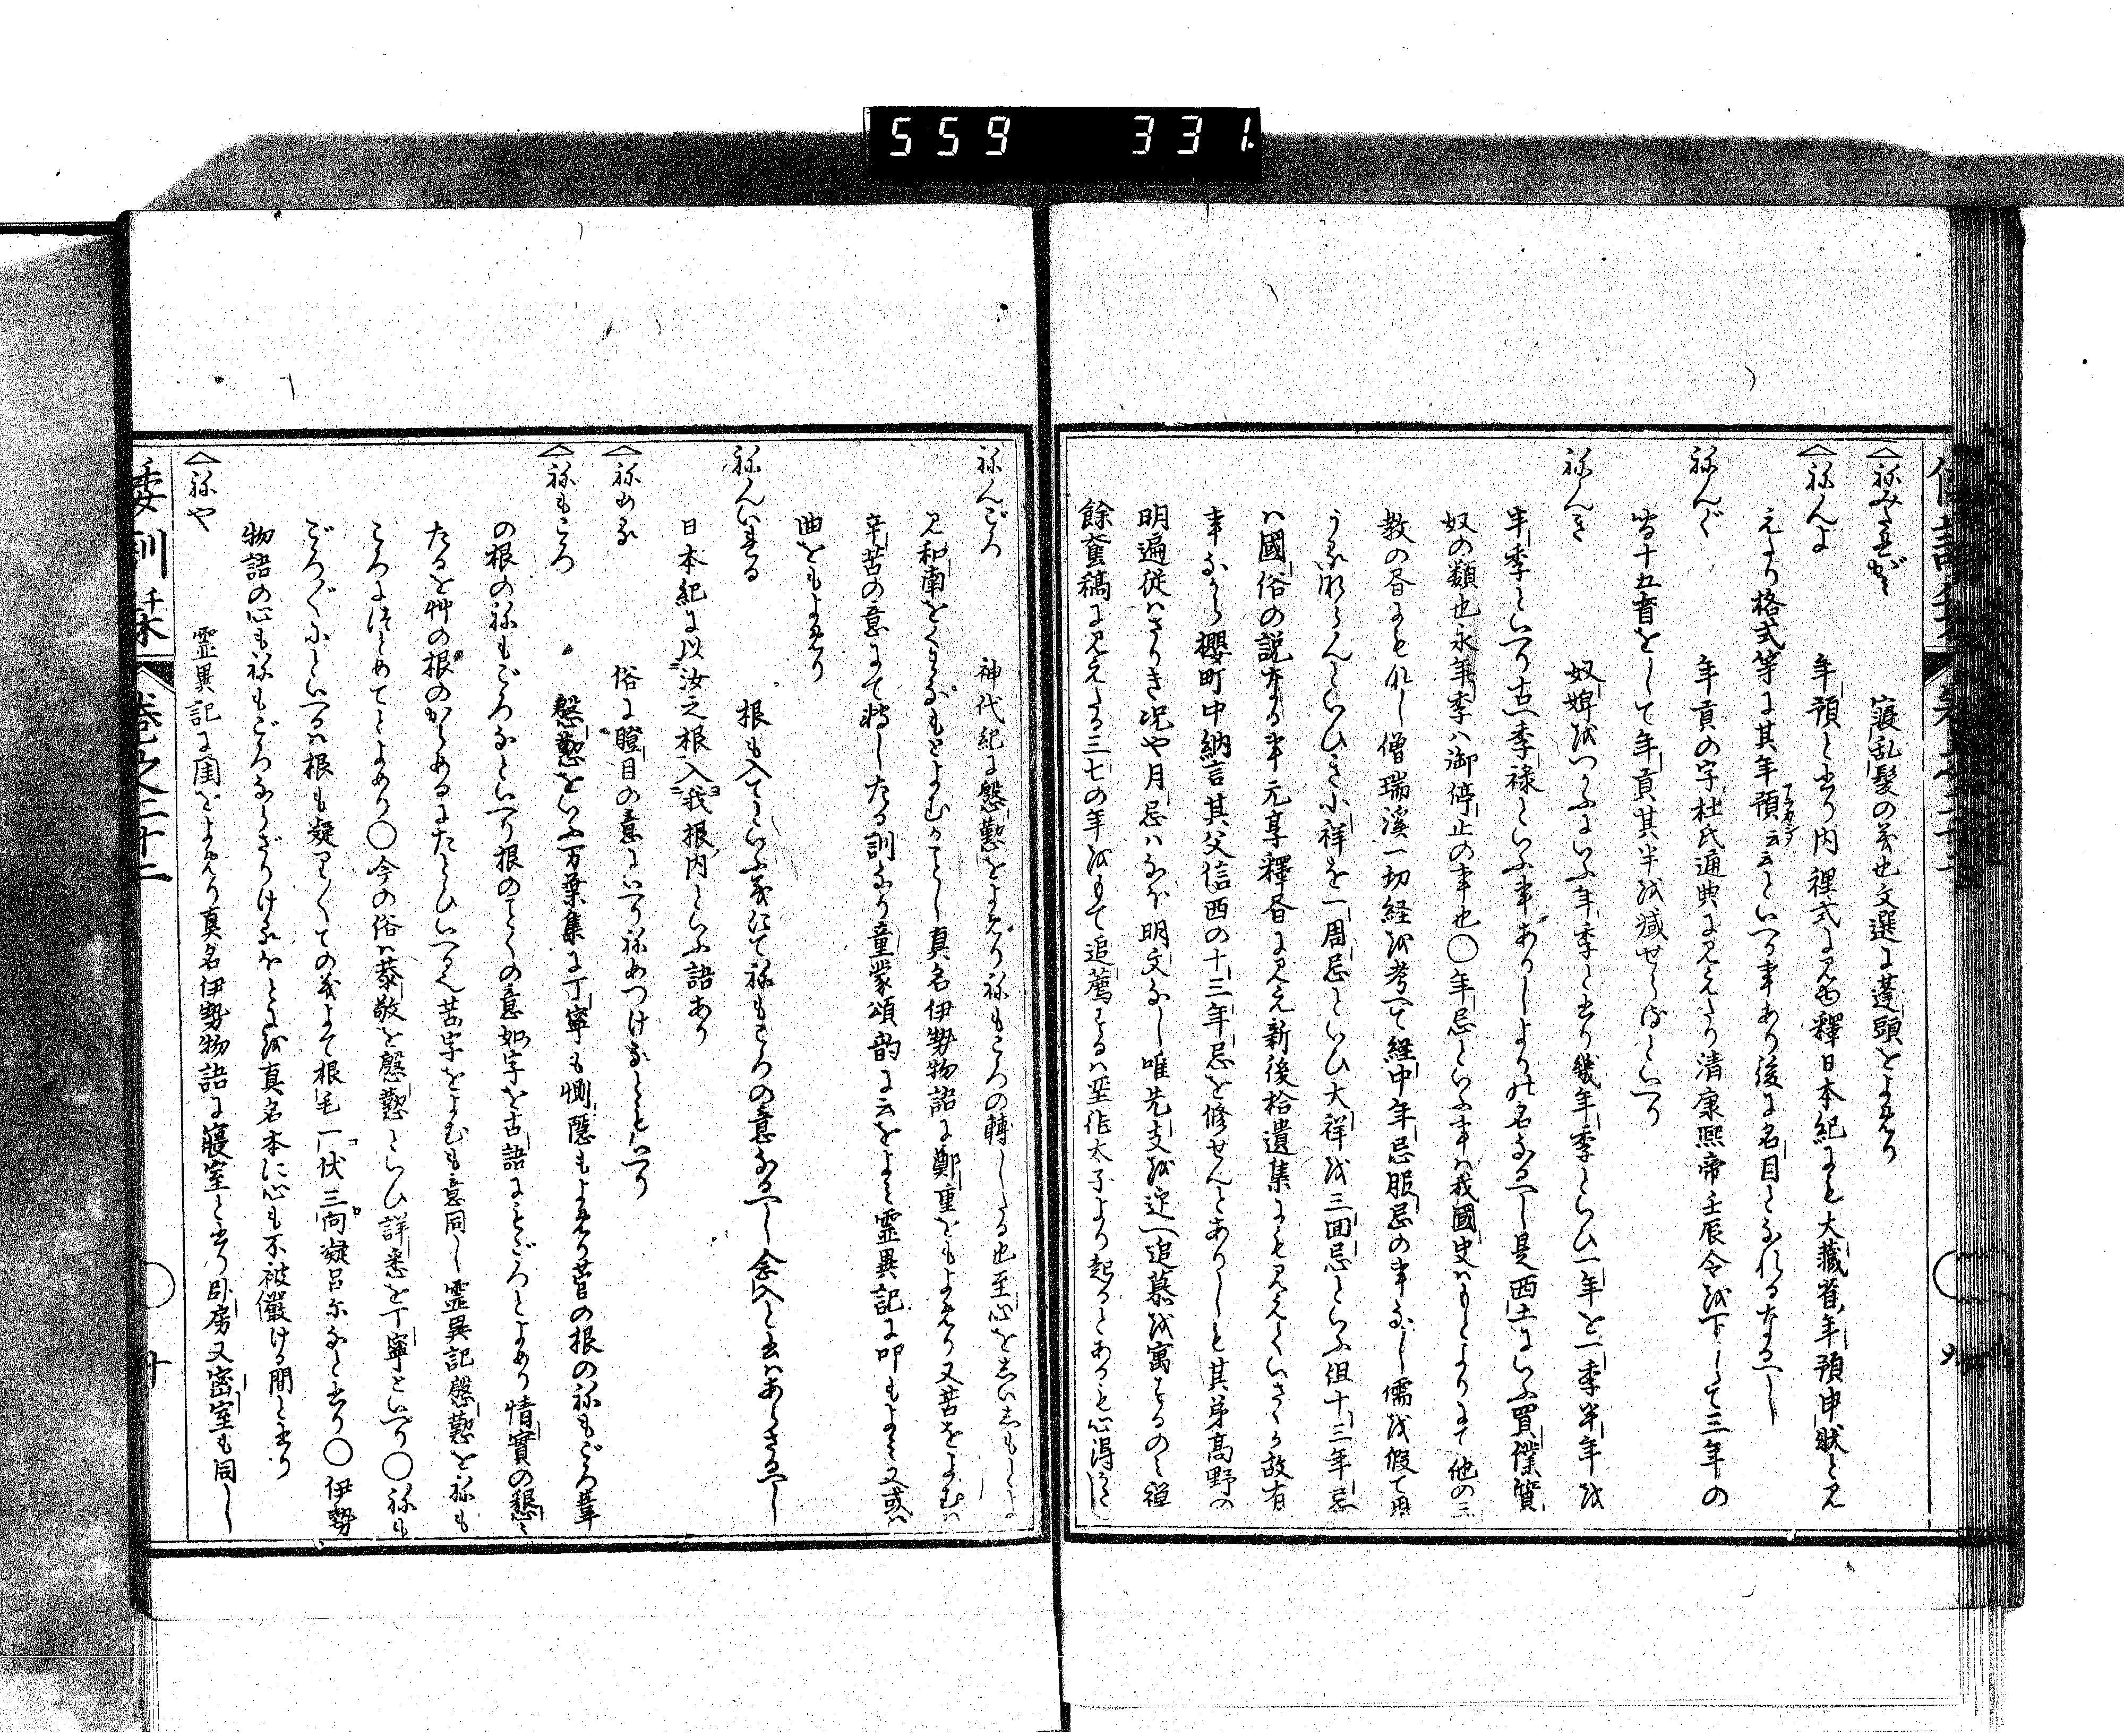 559 331
ねみだれがみ 寝乱髪の義也文選に蓬頭をよめり
ねんよ 年預と書り内裡式に見ゆ釋日本紀にも大藏省年預申状と見
えたり格式等に其年預云々といへる事あり後に名目となれるなるべし
ねんぐ 年貢の字杜氏通典に見えたり清康熙帝壬辰令を下して三年の
皆十五省をして年貢其半を減せらるといへり
ねんき 奴婢をつかふにいふ年季と書り幾年季といひ一年を一季半年を
半季といへり古一季禄といふ事ありしよりの名なるべし是西土にいふ買僕質
奴の類也永年季ハ御停止の事也〇年忌といふ事ハ我國史ハもとよりにて他の三
教の書にもなし僧瑞溪一切経を考へて経中年忌服忌の事なし儒を假て用
うるならんといひき小祥を一周忌といひ大祥を三回忌といふ但十三年忌
ハ國俗の説なる事元亨釋書に見え新後拾遺集にも見えていさゝか故有
事ながら櫻町中納言其父信西の十三年忌を修せんとありしを其弟高野の
明遍従ハさりき况や月忌ハなほ明文なし唯先支を迎へ追慕を寓するのミ種
餘奮稿に見えたる三七の年をもて追薦するハ聖作太子より起るとあるも心得
ねんごろ 神代紀に慇懃をよめりねもころの轉したる也至心をしいしもとよ
み和南をくまなもとよむがことし真名伊勢物語に鄭重をもよめり又苦をよむハ
辛苦の意にて轉したる訓なり童蒙頌韵に云をよミ霊異記に叩もよミ又或ハ
曲をもよめり
ねんいれる 根も入てといふ義にてねもころの意なるべし念入と書ハあらさるべし
日本紀に以汝之根入我根内といふ語あり
ねめる 俗に瞪目の意にいへりねめつけるともいへり
ねもころ 慇懃をいふ万葉集に丁寧も惻隠もよめり菅の根のねもごろ葦
の根のねもごろなといへり根のことくの意如字を古語にもごろとよめり情實の懇ミ
たるを艸の根のからめるにたとひいへるへ苦字をよむも意同し霊異記慇懃をねも
ころにつとめてとよめり〇今の俗ハ恭敬を慇懃といひ詳悉を丁寧といへり〇ねも
ごろ〳〵にといへるハ根も凝り〳〵ての義よて根毛一伏三向凝呂尓なと書り〇伊勢
物語の心もねもごろならざりけるをとを真名本に心も不被嚴ける間と書り
ねや 霊異記に閨をよめり真名伊勢物語に寝室と書り臥房又密室も同し
倭訓栞 巻之二十二 〇 廿